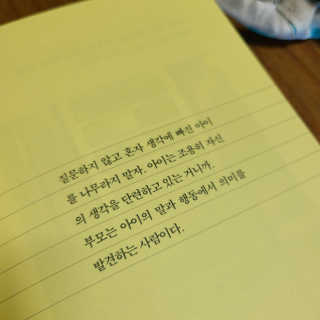 질문하지 않고 혼자 생각에 빠진 아이
를 나무라지 말자. 아이는 조용히 자신
의 생각을 단련하고 있는 거니까.
부모는 아이의 말과 행동에서 의미를
발견하는 사람이다.